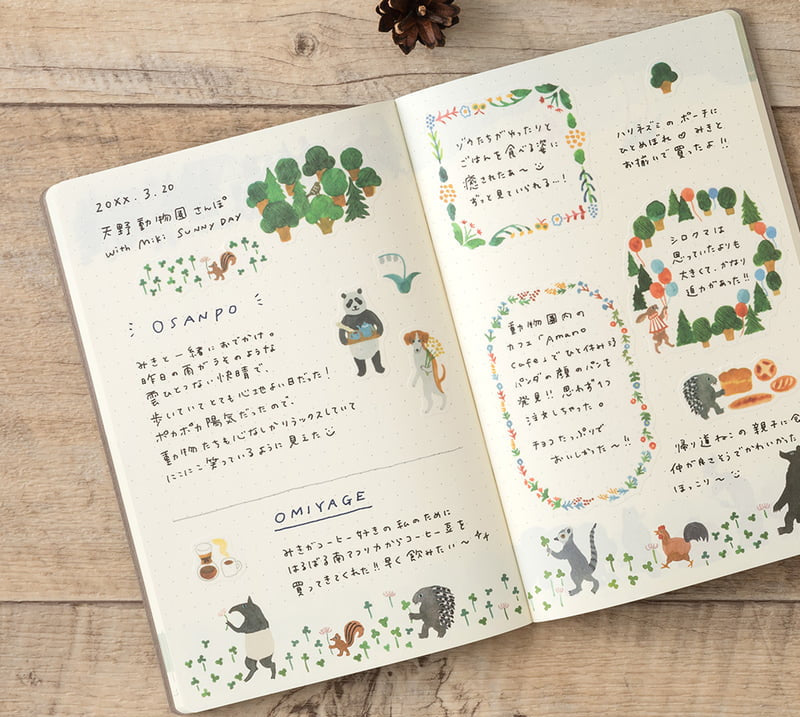 20XX. 3. 20
天野動物園さんぽ
with Miki SUNNY DAY
OSANPO
みきと一緒におでかけ。
昨日の雨がうそのような
雲ひとつない快晴で、
歩いていてとても心地よい日だった!
ポカポカ陽気だったので、
動物たちも心なしかリラックスしていて
にこにこ笑っているように見えた
OMIYAGE
みきがコーヒー好きの私のために
はるばる南アフリカからコーヒー豆を
買ってきてくれた!!早く飲みたい〜
ゾウたちがゆったりと
ごはんを食べる姿に
癒されたぁ〜
ずっと見ていられる…!
ハリネズミのポーチに
ひとめぼれ♡みきと
お揃いで買ったよ!!
シロクマは
思っていたよりも
大きくて、かなり
迫力があった!!
動物園内の
カフェ「Amano
Cafe」でひと休み
パンダの顔のパンを
発見!!思わず1つ
注文しちゃった。
チョコたっぷりで
おいしかった〜!!
帰り道ねこの親子に会
仲が良さそうでかわいかった
ほっこり〜